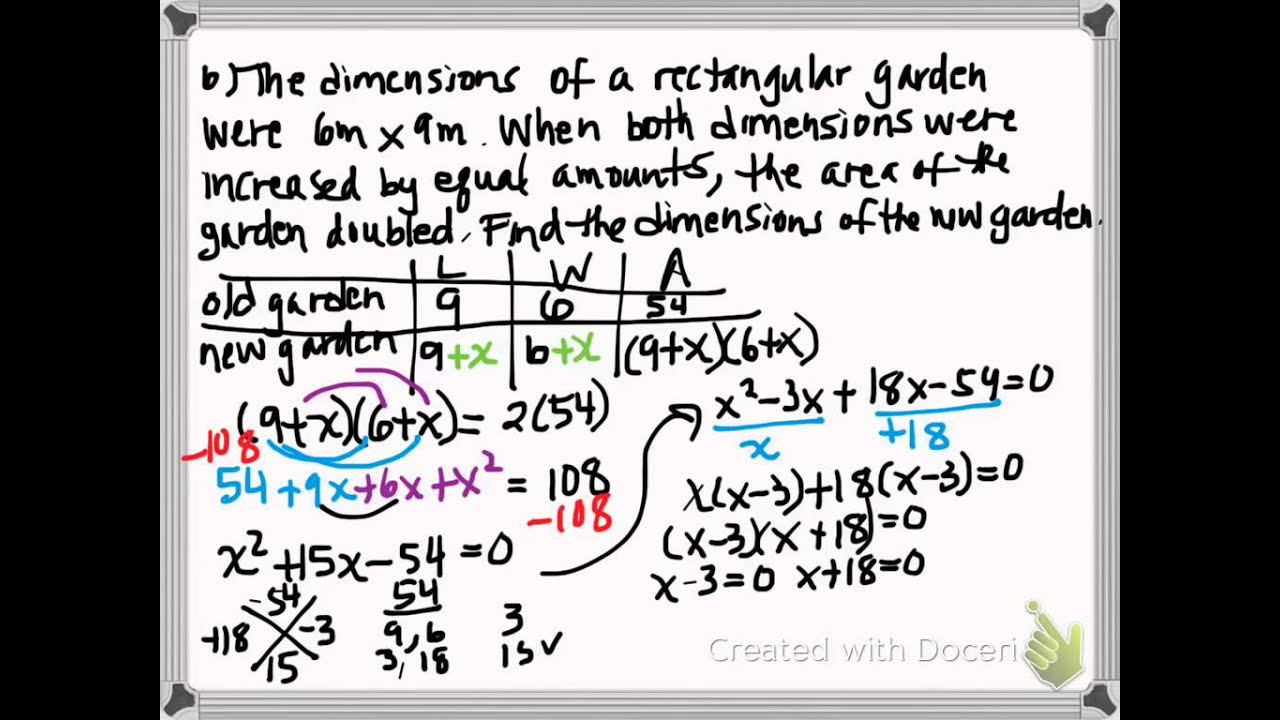 b) The dimensions of a rectangular garden
were 6m x 9m. When both dimensions were
increased by equal amounts, the area of the
garden doubled. Find the dimensions of the new garden.
L W A
old garden 9 6 54
new garden 9+x 6+x (9+x)(6+x)
(9+x)(6+x) = 2(54)
-108
54 + 9x + 6x + x² = 108
-108
x² + 15x - 54 = 0
-54
+18 -3
15
54
9, 6
3, 18
3
15 ✓
x² - 3x + 18x - 54 = 0
x +18
x(x-3) + 18(x-3) = 0
(x-3)(x+18) = 0
x-3=0 x+18=0
Created with Doceri